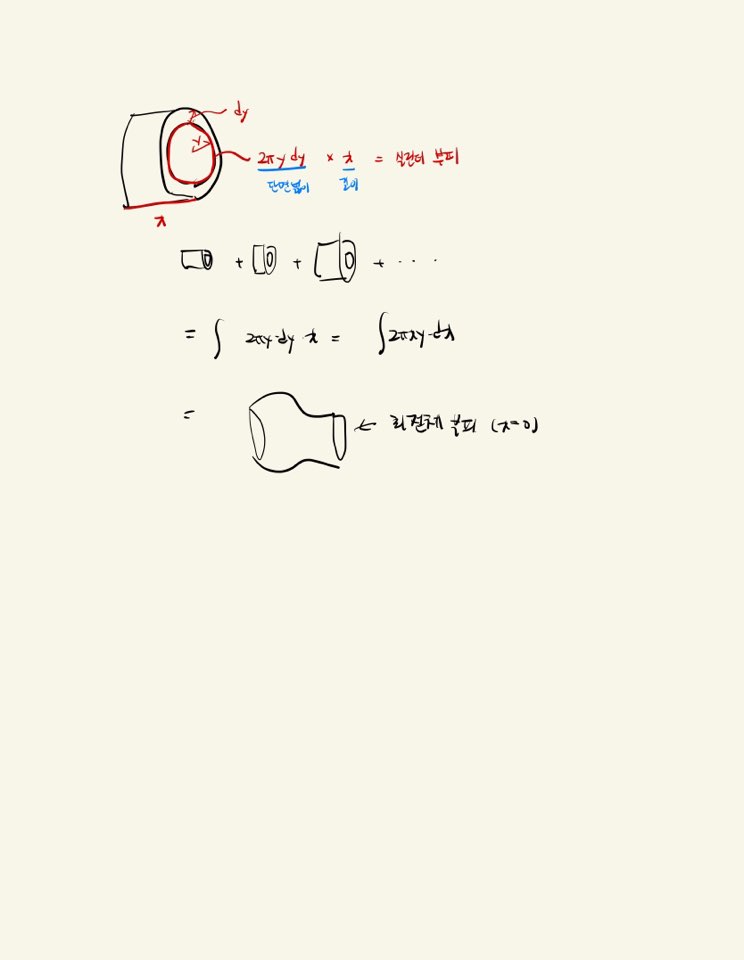 dy
y
2πy dy × x = 실린더 부피
단면넓이 길이
x
+ + + · · · ·
= ∫ 2πy·dy·x = ∫2πxy·dx
= ← 회전체 부피 (x=0)